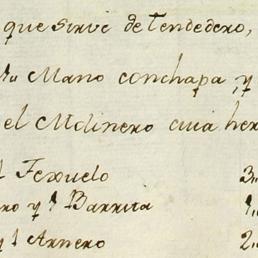 que sirve de Tendedero,
su Mano conchapa, y
el Molinero cuia her
Texuelo 3,,
ro y 1 Barrita 1,,
y 1 Arnero 2,,